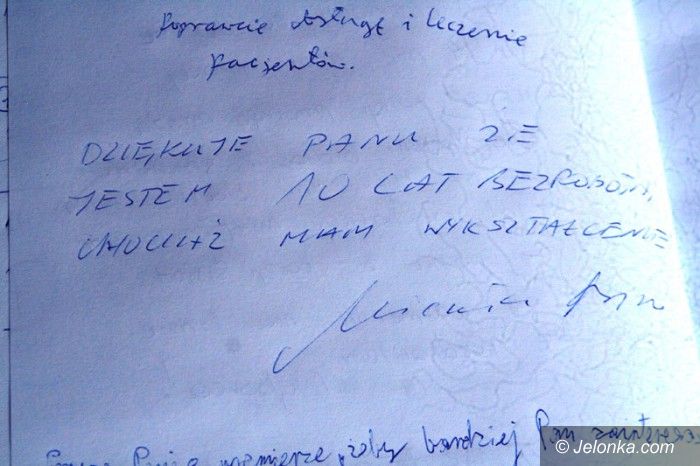 Poprawcie obsługę i leczenie
pacjentów.
DZIĘKUJE PANU ŻE
JESTEM 10 LAT BEZROBOTN
CHOCIAŻ MAM WYKSZTAŁCENIE
Panie premierze, żeby bardziej Pan
© Jelonka.com